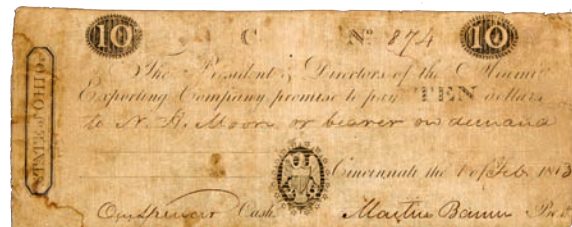 10 C No 874 10
The President & Directors of the Miami
Exporting Company promise to pay TEN dollars
to N. A. Moore or bearer on demand
Cincinnati the 1 of Feb. 1813
Cash. Martin Baum Pres.
STATE of OHIO